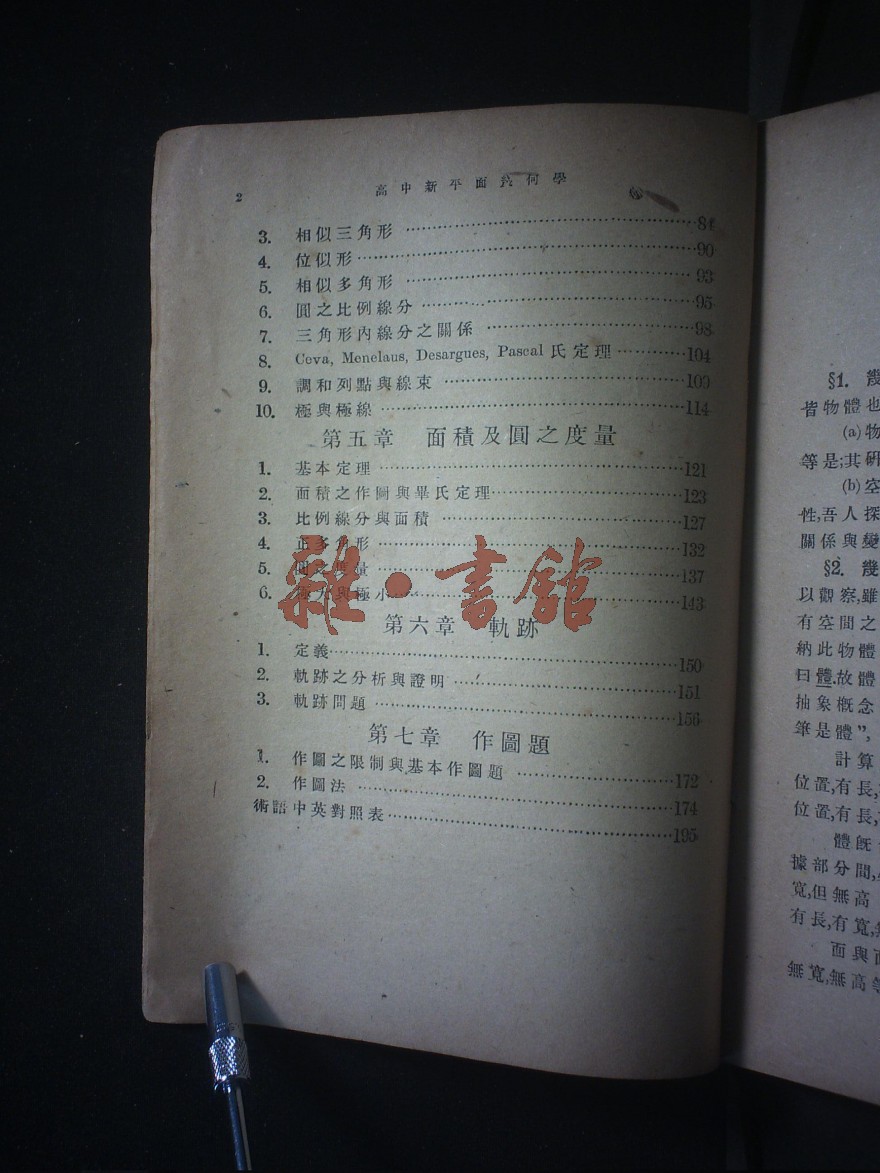 2
高中新平面幾何學
3. 相似三角形 84
4. 位似形 90
5. 相似多角形 93
6. 圓之比例線分 95
7. 三角形內線分之關係 98
8. Ceva, Menelaus, Desargues, Pascal 氏定理 104
9. 調和列點與線束 109
10. 極與極線 114
第五章 面積及圓之度量
1. 基本定理 121
2. 面積之作圖與畢氏定理 123
3. 比例線分與面積 127
4. 正多角形 132
5. 圓之度量 137
6. 極大與極小 143
第六章 軌跡
1. 定義 150
2. 軌跡之分析與證明 151
3. 軌跡問題 156
第七章 作圖題
1. 作圖之限制與基本作圖題 172
2. 作圖法 174
術語中英對照表 195
雜·書館
§1. 幾
皆物體也
(a)物
等是;其研
(b)空
性,吾人探
關係與變
§2. 幾
以觀察,雖
有空間之
納此物體
曰體.故體
抽象概念
筆是體”,
計算
位置,有長,
位置,有長,
體既
據部分間,
寬,但無高
有長,有寬,
面與面
無寬,無高等